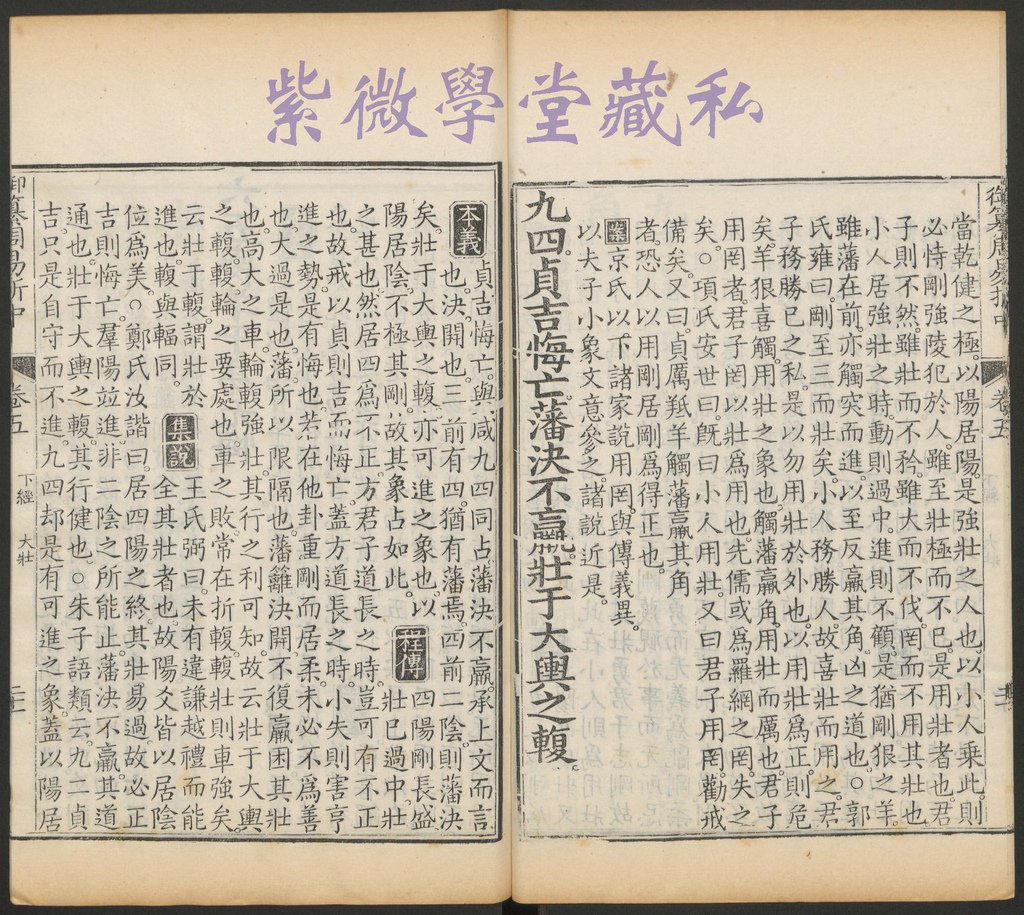 紫微學堂藏私
當乾健之極。以陽居陽。是強壯之人也。以小人乘此。則
必恃剛強陵犯於人。雖至壯極而不已。是用壯者也。君
子則不然。雖壯而不矜。雖大而不伐。罔而不用其壯也。
小人居強壯之時。動則過中。進則不顧。是猶剛狠之羊。
雖藩在前。亦觸突而進。以至反羸其角。凶之道也。○郭
氏雍曰。剛至三而壯矣。小人務勝人。故喜壯而用之。君
子務勝己之私。是以勿用壯於外也。以用壯爲正。則危
矣。羊狠喜觸。用壯之象也。觸藩羸角。用壯而厲也。君子
用罔者。君子罔以壯爲用也。先儒或爲羅網之罔。失之
矣。○項氏安世曰。旣曰小人用壯。又曰君子用罔。勸戒
備矣。又曰。貞厲羝羊觸藩羸其角
者。恐人以用剛居剛爲得正也。
案京氏以下諸家說用罔。與傳義異。
以夫子小象文意參之。諸說近是。
九四貞吉悔亡藩決不羸。壯于大輿之輹。
本義 貞吉悔亡。與咸九四同占。藩決不羸。承上文而言
也。決。開也。三前有四。猶有藩焉。四前二陰。則藩決
矣。壯于大輿之輹。亦可進之象也。以
陽居陰。不極其剛。故其象占如此。
程傳 四陽剛長盛
壯已過中。壯
之甚也。然居四爲不正。方君子道長之時。豈可有不正
也。故戒以貞則吉而悔亡。蓋方道長之時。小失則害亨
進之勢。是有悔也。若在他卦。重剛而居柔。未必不爲善
也。大過是也。藩所以限隔也。藩籬決開。不復羸困其壯
也。高大之車。輪輹強壯。其行之利可知。故云壯于大輿
之輹。輹輪之要處也。車之敗。常在折輹。輹壯則車強矣。
云壯于輹。謂壯於
進也。輹與輻同。
集說 王氏弼曰。未有違謙越禮而能
全其壯者也。故陽爻皆以居陰
位爲美。○鄭氏汝諧曰。居四陽之終。其壯易過。故必正
吉則悔亡。羣陽竝進。非二陰之所能止。藩決不羸。其道
通也。壯于大輿之輹。其行健也。○朱子語類云。九二貞
吉。只是自守而不進。九四却是有可進之象。蓋以陽居
御纂周易折中 卷五 下經 大壯